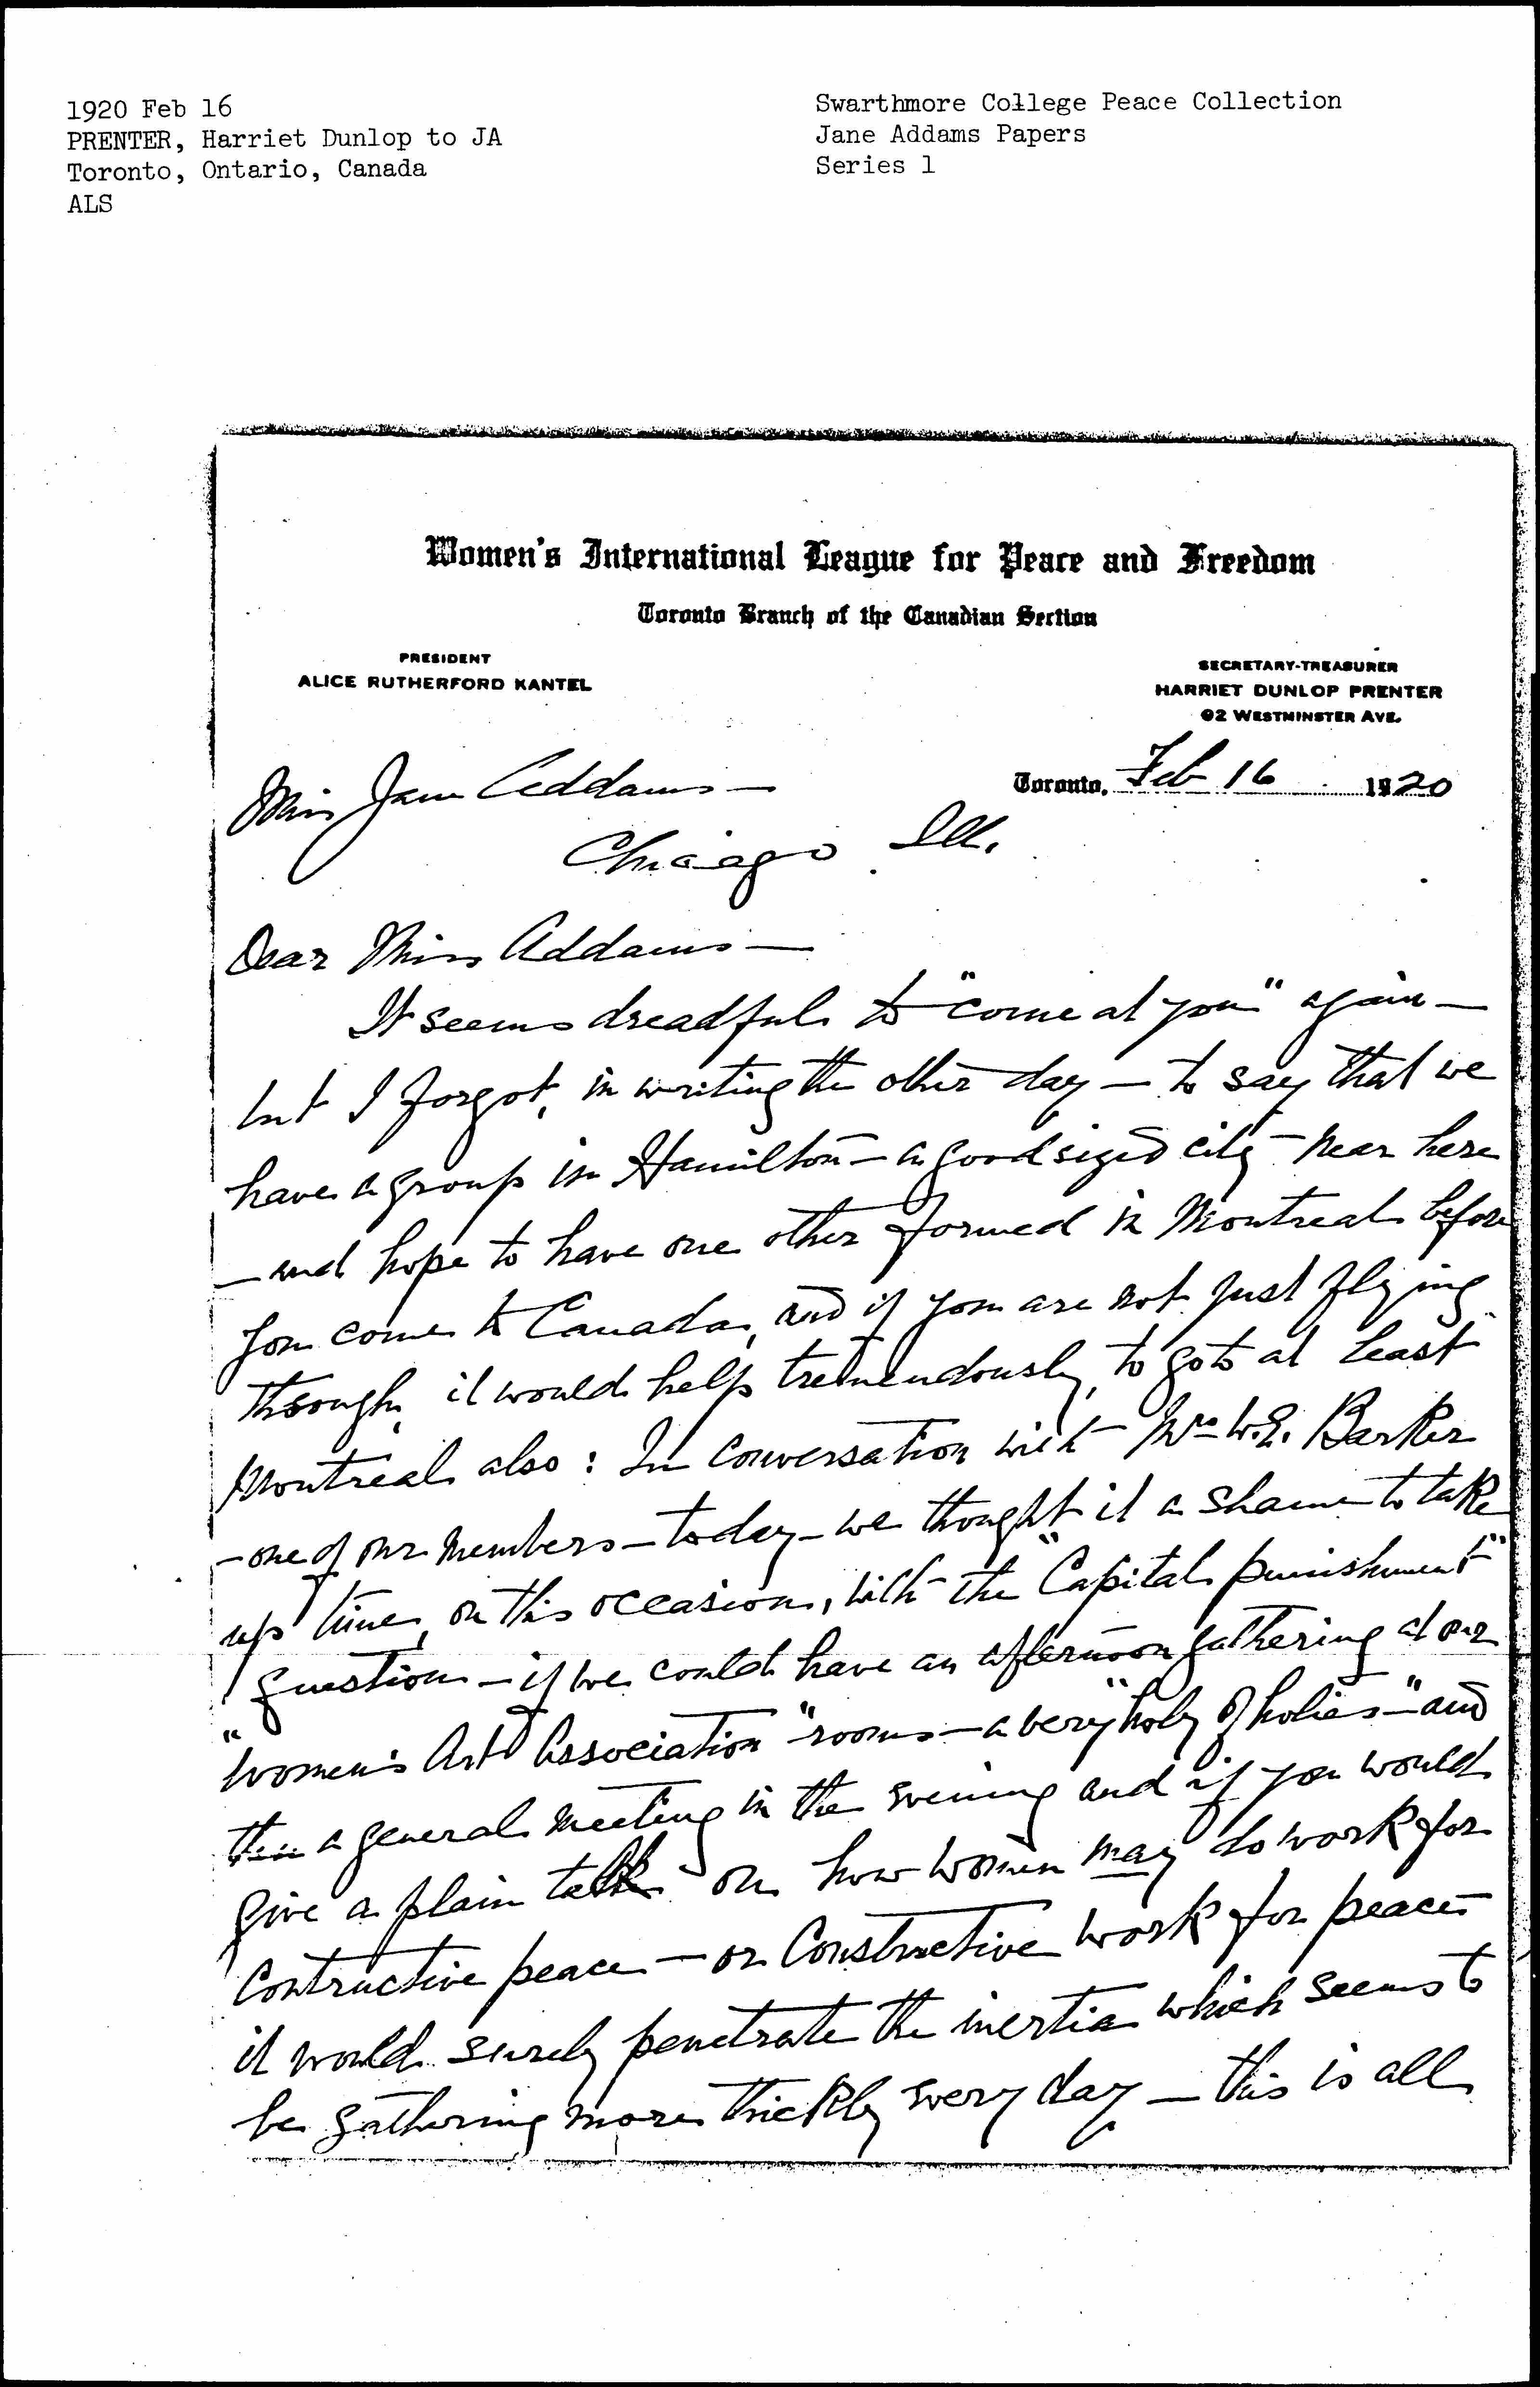 1920 Feb 16
PRENTER, Harriet Dunlop to JA
Toronto, Ontario, Canada
ALS
Swarthmore College Peace Collection
Jane Addams Papers
Series 1
Women's International League for Peace and Freedom
Toronto Branch of the Canadian Section
PRESIDENT
ALICE RUTHERFORD KANTEL
SECRETARY-TREASURER
HARRIET DUNLOP PRENTER
92 WESTMINSTER AVE.
Toronto, Feb 16 1920
Miss Jane Addams —
Chicago Ill.
Dear Miss Addams —
It seems dreadful to "come at you" again —
but I forgot, in writing the other day — to say that we
have a group in Hamilton — a good sized city — near here
— and hope to have one other formed in Montreal before
you come to Canada, and if you are not just flying
through, it would help tremendously, to go to at least
Montreal also: In conversation with Mrs W.E. Barker
— one of our members — today — we thought it a shame to take
up time, on this occasion, with the "Capital punishment"
question — if we could have an afternoon gathering at our
"Women's Art Association" rooms — a very "holy of holies —" and
then a general meeting in the evening and if you would
give a plain talk on how women may do work for
contructive peace — or Constructive work for peace —
it would surely penetrate the inertia which seems to
be gathering more thickly every day — this is all